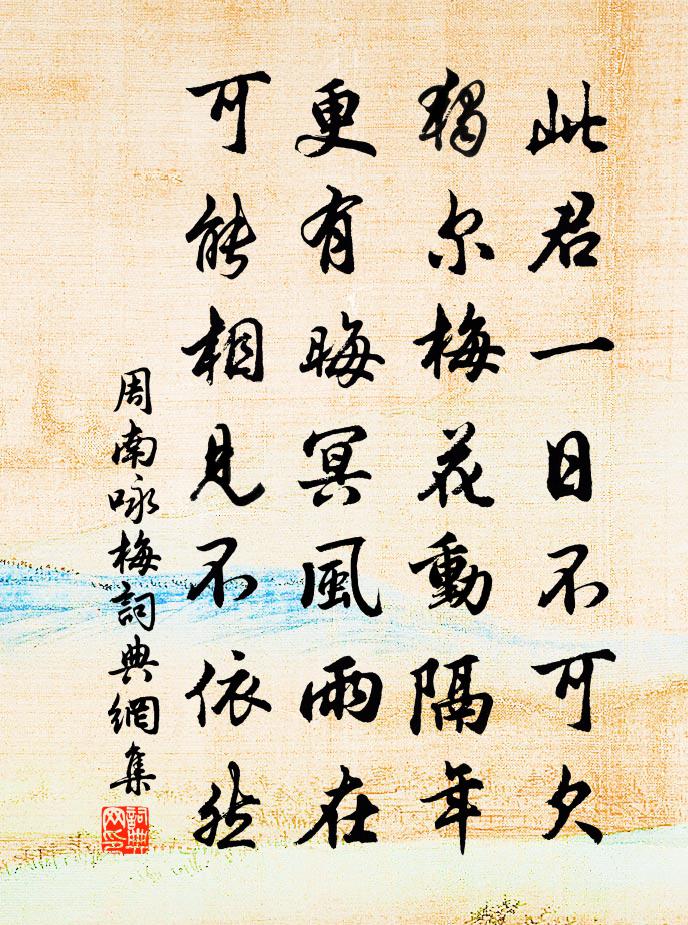 此君一日不可欠
独尔梅花動隔年
更有晦冥風雨在
可能相見不依然
周南咏梅詞典網集
詞典网印